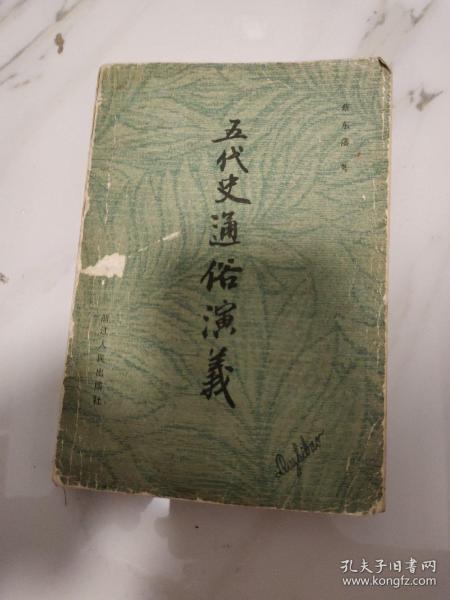 蔡东藩 著
五代史通俗演義
浙江人民出版社
孔夫子旧书网
www.kongfz.com